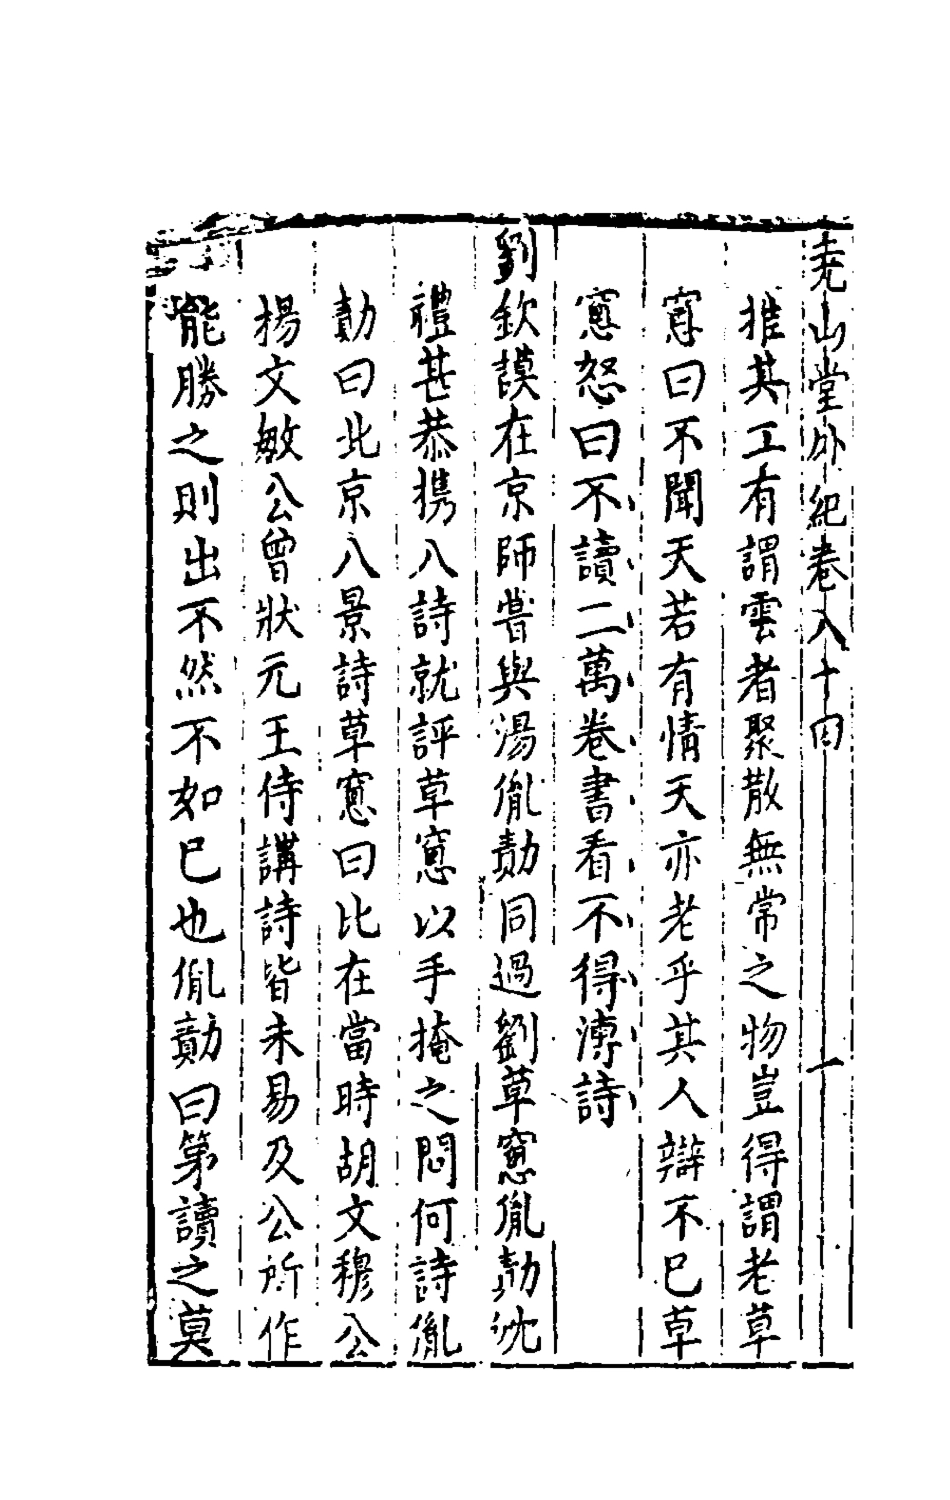 堯山堂外紀卷八十四 一
推其工有謂雲者聚散無常之物豈得謂老草
窓曰不聞天若有情天亦老乎其人辯不已草
窓怒曰不讀二萬卷書看不得溥詩
劉欽謨在京師嘗與湯胤勣同過劉草窓胤勣
禮甚恭攜八詩就評草窓以手掩之問何詩胤
勣曰北京八景詩草窓曰比在當時胡文穆公
楊文敏公曾狀元王侍講詩皆未易及公所作
能勝之則出不然不如已也胤勣曰第讀之莫